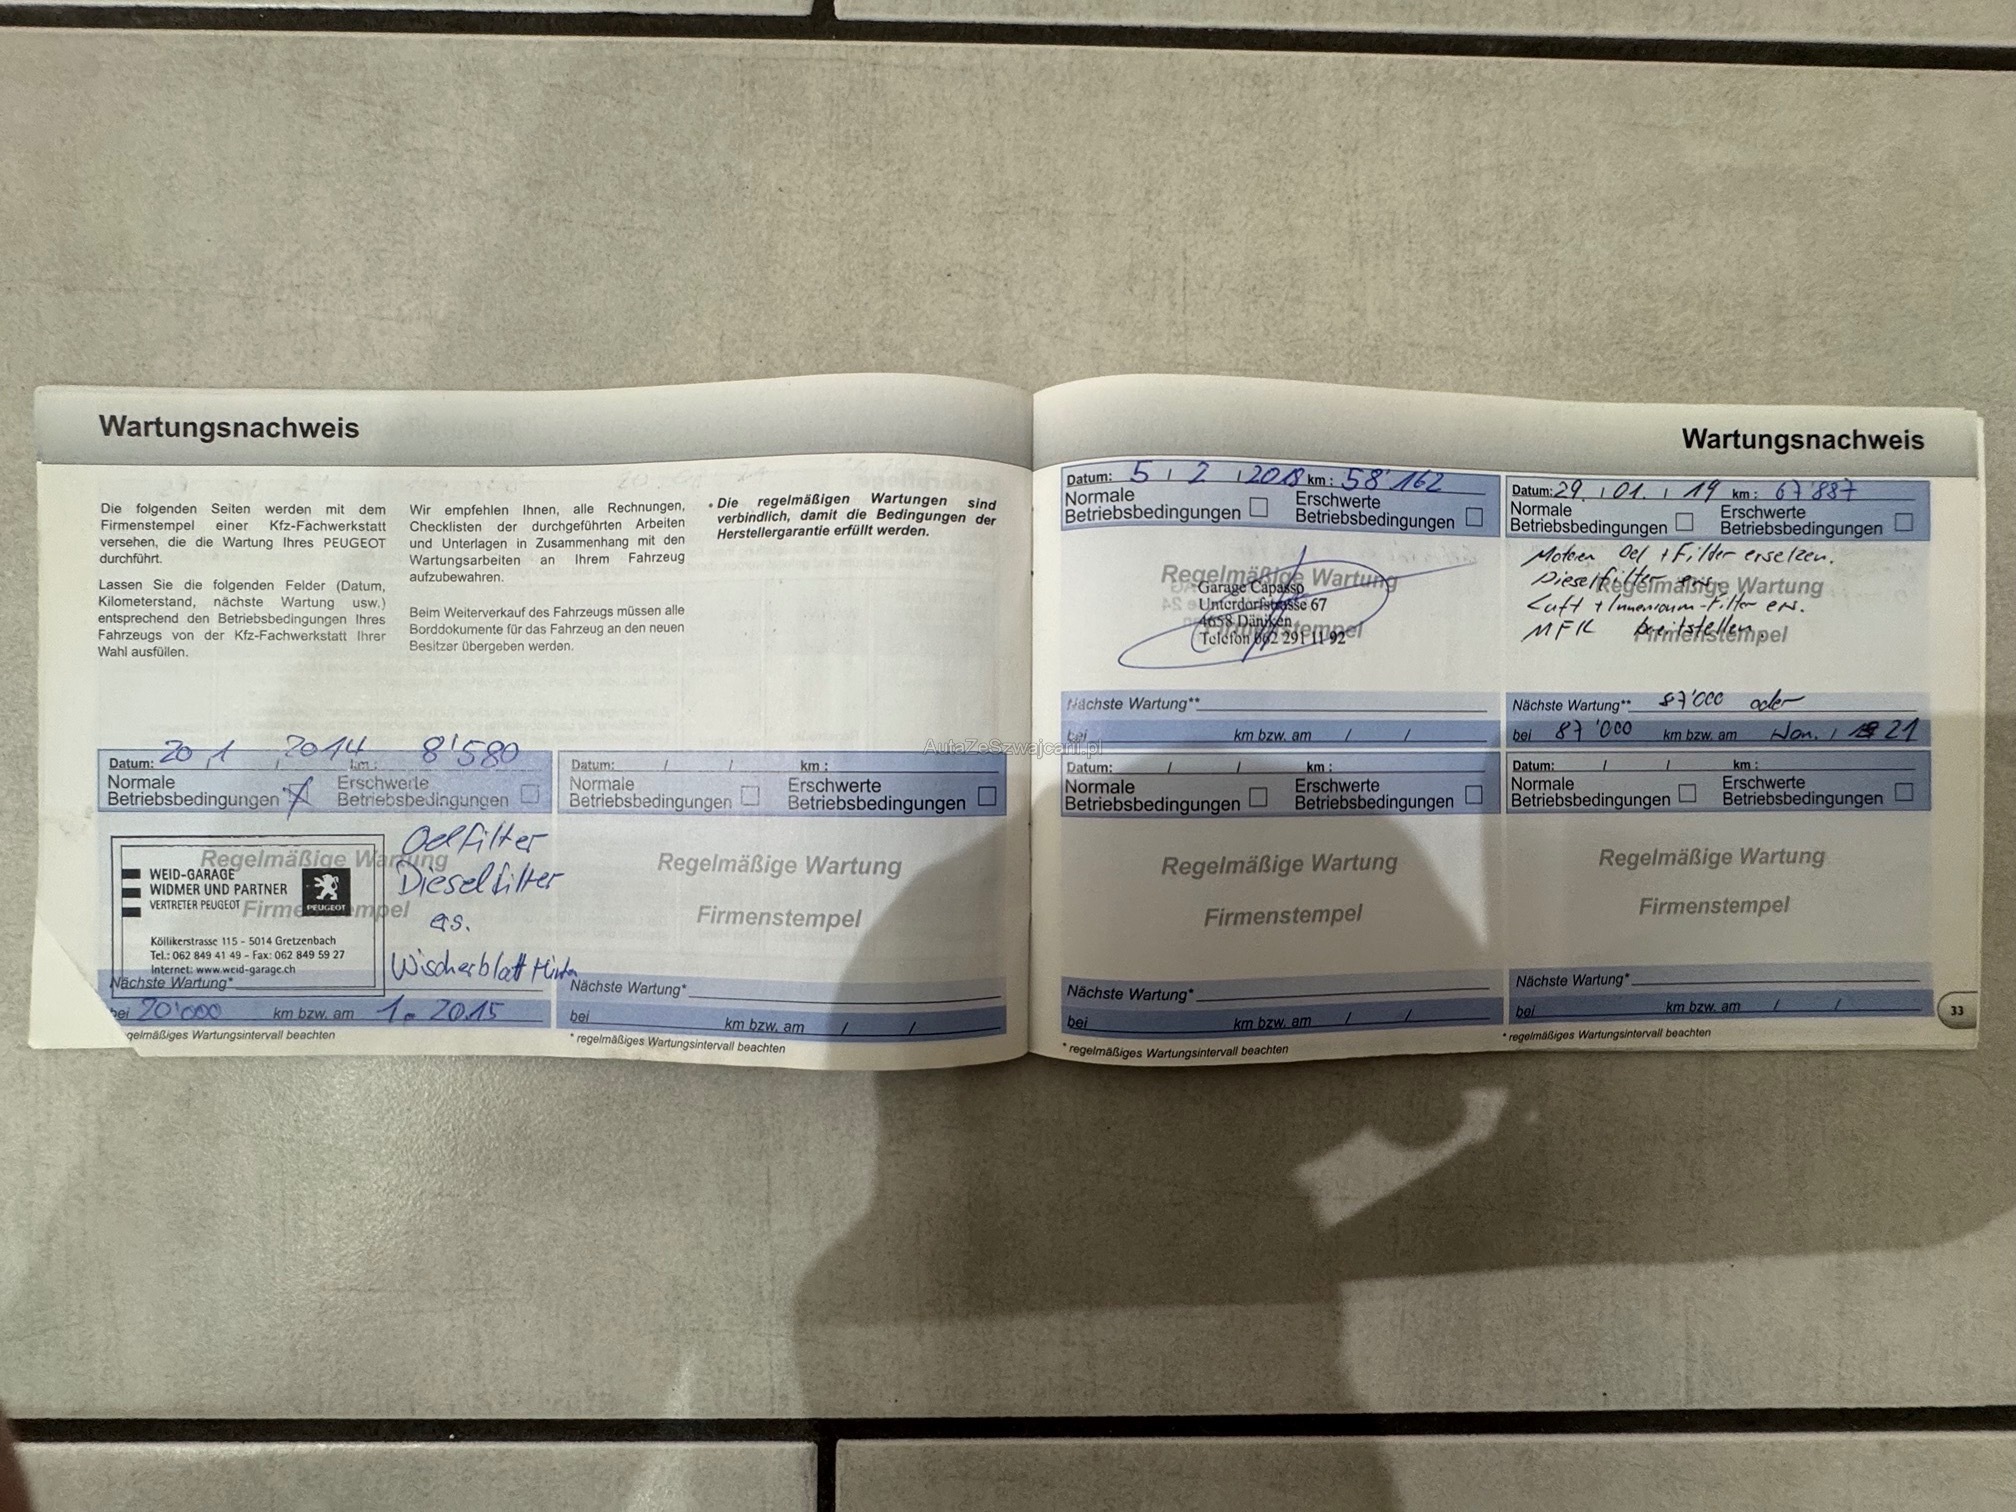 Wartungsnachweis
Die folgenden Seiten werden mit dem
Firmenstempel einer Kfz-Fachwerkstatt
versehen, die die Wartung Ihres PEUGEOT
durchführt.
Lassen Sie die folgenden Felder (Datum,
Kilometerstand, nächste Wartung usw.)
entsprechend den Betriebsbedingungen Ihres
Fahrzeugs von der Kfz-Fachwerkstatt Ihrer
Wahl ausfüllen.
Wir empfehlen Ihnen, alle Rechnungen,
Checklisten der durchgeführten Arbeiten
und Unterlagen in Zusammenhang mit den
Wartungsarbeiten an Ihrem Fahrzeug
aufzubewahren.
Beim Weiterverkauf des Fahrzeugs müssen alle
Borddokumente für das Fahrzeug an den neuen
Besitzer übergeben werden.
• Die regelmäßigen Wartungen sind
verbindlich, damit die Bedingungen der
Herstellergarantie erfüllt werden.
Datum: 20 / 1 / 2014 km: 8'580
Normale
Betriebsbedingungen
Erschwerte
Betriebsbedingungen
Regelmäßige Wartung
Firmenstempel
WEID-GARAGE
WIDMER UND PARTNER
VERTRETER PEUGEOT
PEUGEOT
Köllikerstrasse 115 - 5014 Gretzenbach
Tel.: 062 849 41 49 - Fax: 062 849 59 27
Internet: www.weid-garage.ch
Oelfilter
Dieselfilter
ers.
Wischerblatt Hinten
Nächste Wartung*
bei 20'000 km bzw. am 1. 2015
gelmäßiges Wartungsintervall beachten
Datum: / / km :
Normale
Betriebsbedingungen
Erschwerte
Betriebsbedingungen
Regelmäßige Wartung
Firmenstempel
Nächste Wartung*
bei km bzw. am / /
* regelmäßiges Wartungsintervall beachten
Wartungsnachweis
Datum: 5 / 2 / 2018 km : 58'162
Normale
Betriebsbedingungen
Erschwerte
Betriebsbedingungen
Regelmäßige Wartung
Firmenstempel
Garage Capasso
Unterdorfstrasse 67
4658 Däniken
Telefon 062 291 11 92
Nächste Wartung**
bei km bzw. am / /
Datum: 29. / 01. / 19 km : 67'887
Normale
Betriebsbedingungen
Erschwerte
Betriebsbedingungen
Regelmäßige Wartung
Firmenstempel
Motoren Oel + Filter ersetzen.
Dieselfilter ers.
Luft + Innenraum-Filter ers.
MFK bereitstellen.
Nächste Wartung** 87'000 oder
bei 87'000 km bzw. am / 21
Datum: / / km :
Normale
Betriebsbedingungen
Erschwerte
Betriebsbedingungen
Regelmäßige Wartung
Firmenstempel
Nächste Wartung*
bei km bzw. am / /
* regelmäßiges Wartungsintervall beachten
Datum: / / km :
Normale
Betriebsbedingungen
Erschwerte
Betriebsbedingungen
Regelmäßige Wartung
Firmenstempel
Nächste Wartung*
bei km bzw. am / /
* regelmäßiges Wartungsintervall beachten
33
AutaZeSzwajcarii.pl